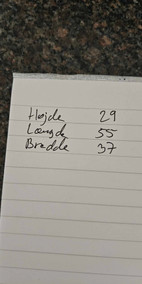 Højde 29
Længde 55
Bredde 37